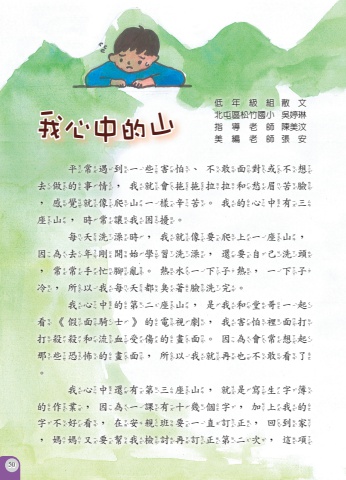 我心中的山
低年級組散文
北屯區松竹國小 吳婷琳
指導老師 陳美汶
美編老師 張安
平常遇到一些害怕、不敢面對或不想
去做的事情，我就會拖拖拉拉和愁眉苦臉
，感覺就像爬山一樣辛苦。我的心中有三
座山，時常讓我困擾。
每天洗澡時，我就像要爬上一座山，
因為去年剛開始學習洗澡，還要自己洗頭
，常常手忙腳亂。熱水一下子熱，一下子
冷，所以我每天都臭著臉洗完。
我心中的第二座山，是我和堂哥一起
看《假面騎士》的電視劇，我害怕裡面打打
殺殺和流血受傷的畫面。因為會常想起
那些恐怖的畫面，所以我就再也不敢看了
。
我心中還有第三座山，就是寫生字簿
的作業，因為一課有十幾個字，加上我的
字不好看，在安親班要一直訂正，回到家
，媽媽又要幫我檢討再訂正第二次，這項
50